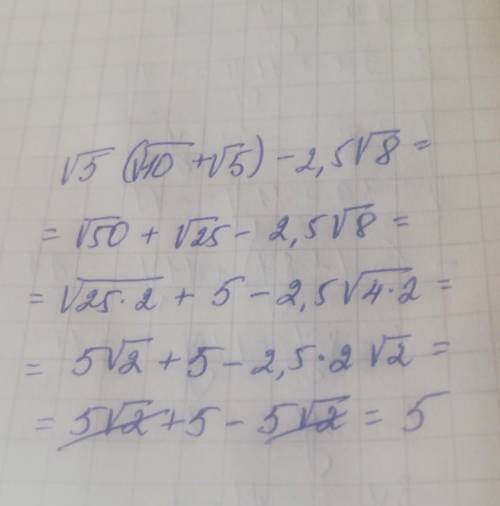 √5 (√10 + √5) - 2,5√8 =
= √50 + √25 - 2,5√8 =
= √25·2 + 5 - 2,5√4·2 =
= 5√2 + 5 - 2,5·2√2 =
= 5√2 + 5 - 5√2 = 5